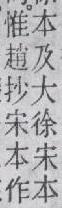 本及大徐宋本
惟趙抄宋本作